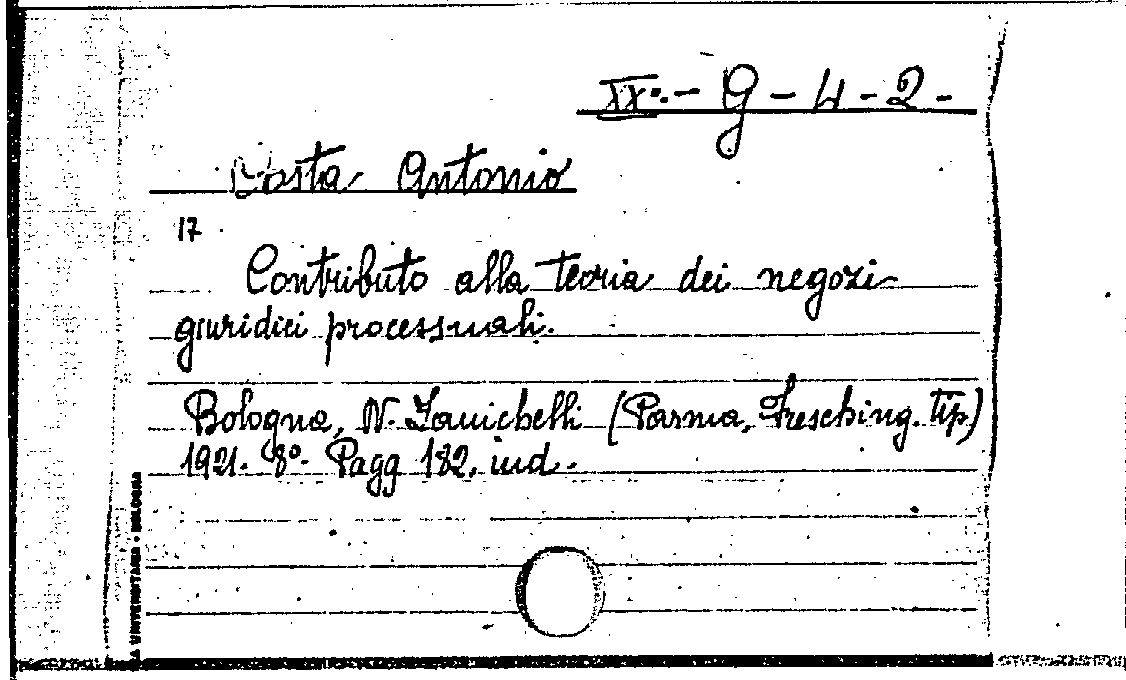 XXº.- G - 4 - 2 -
Costa Antonio
17
Contributo alla teoria dei negozi
giuridici processuali.
Bologna, N. Zanichelli (Parma, Fresching. tip)
1921. 8º. Pagg 182. ind.
UNIVERSITARIA • BOLOGNA